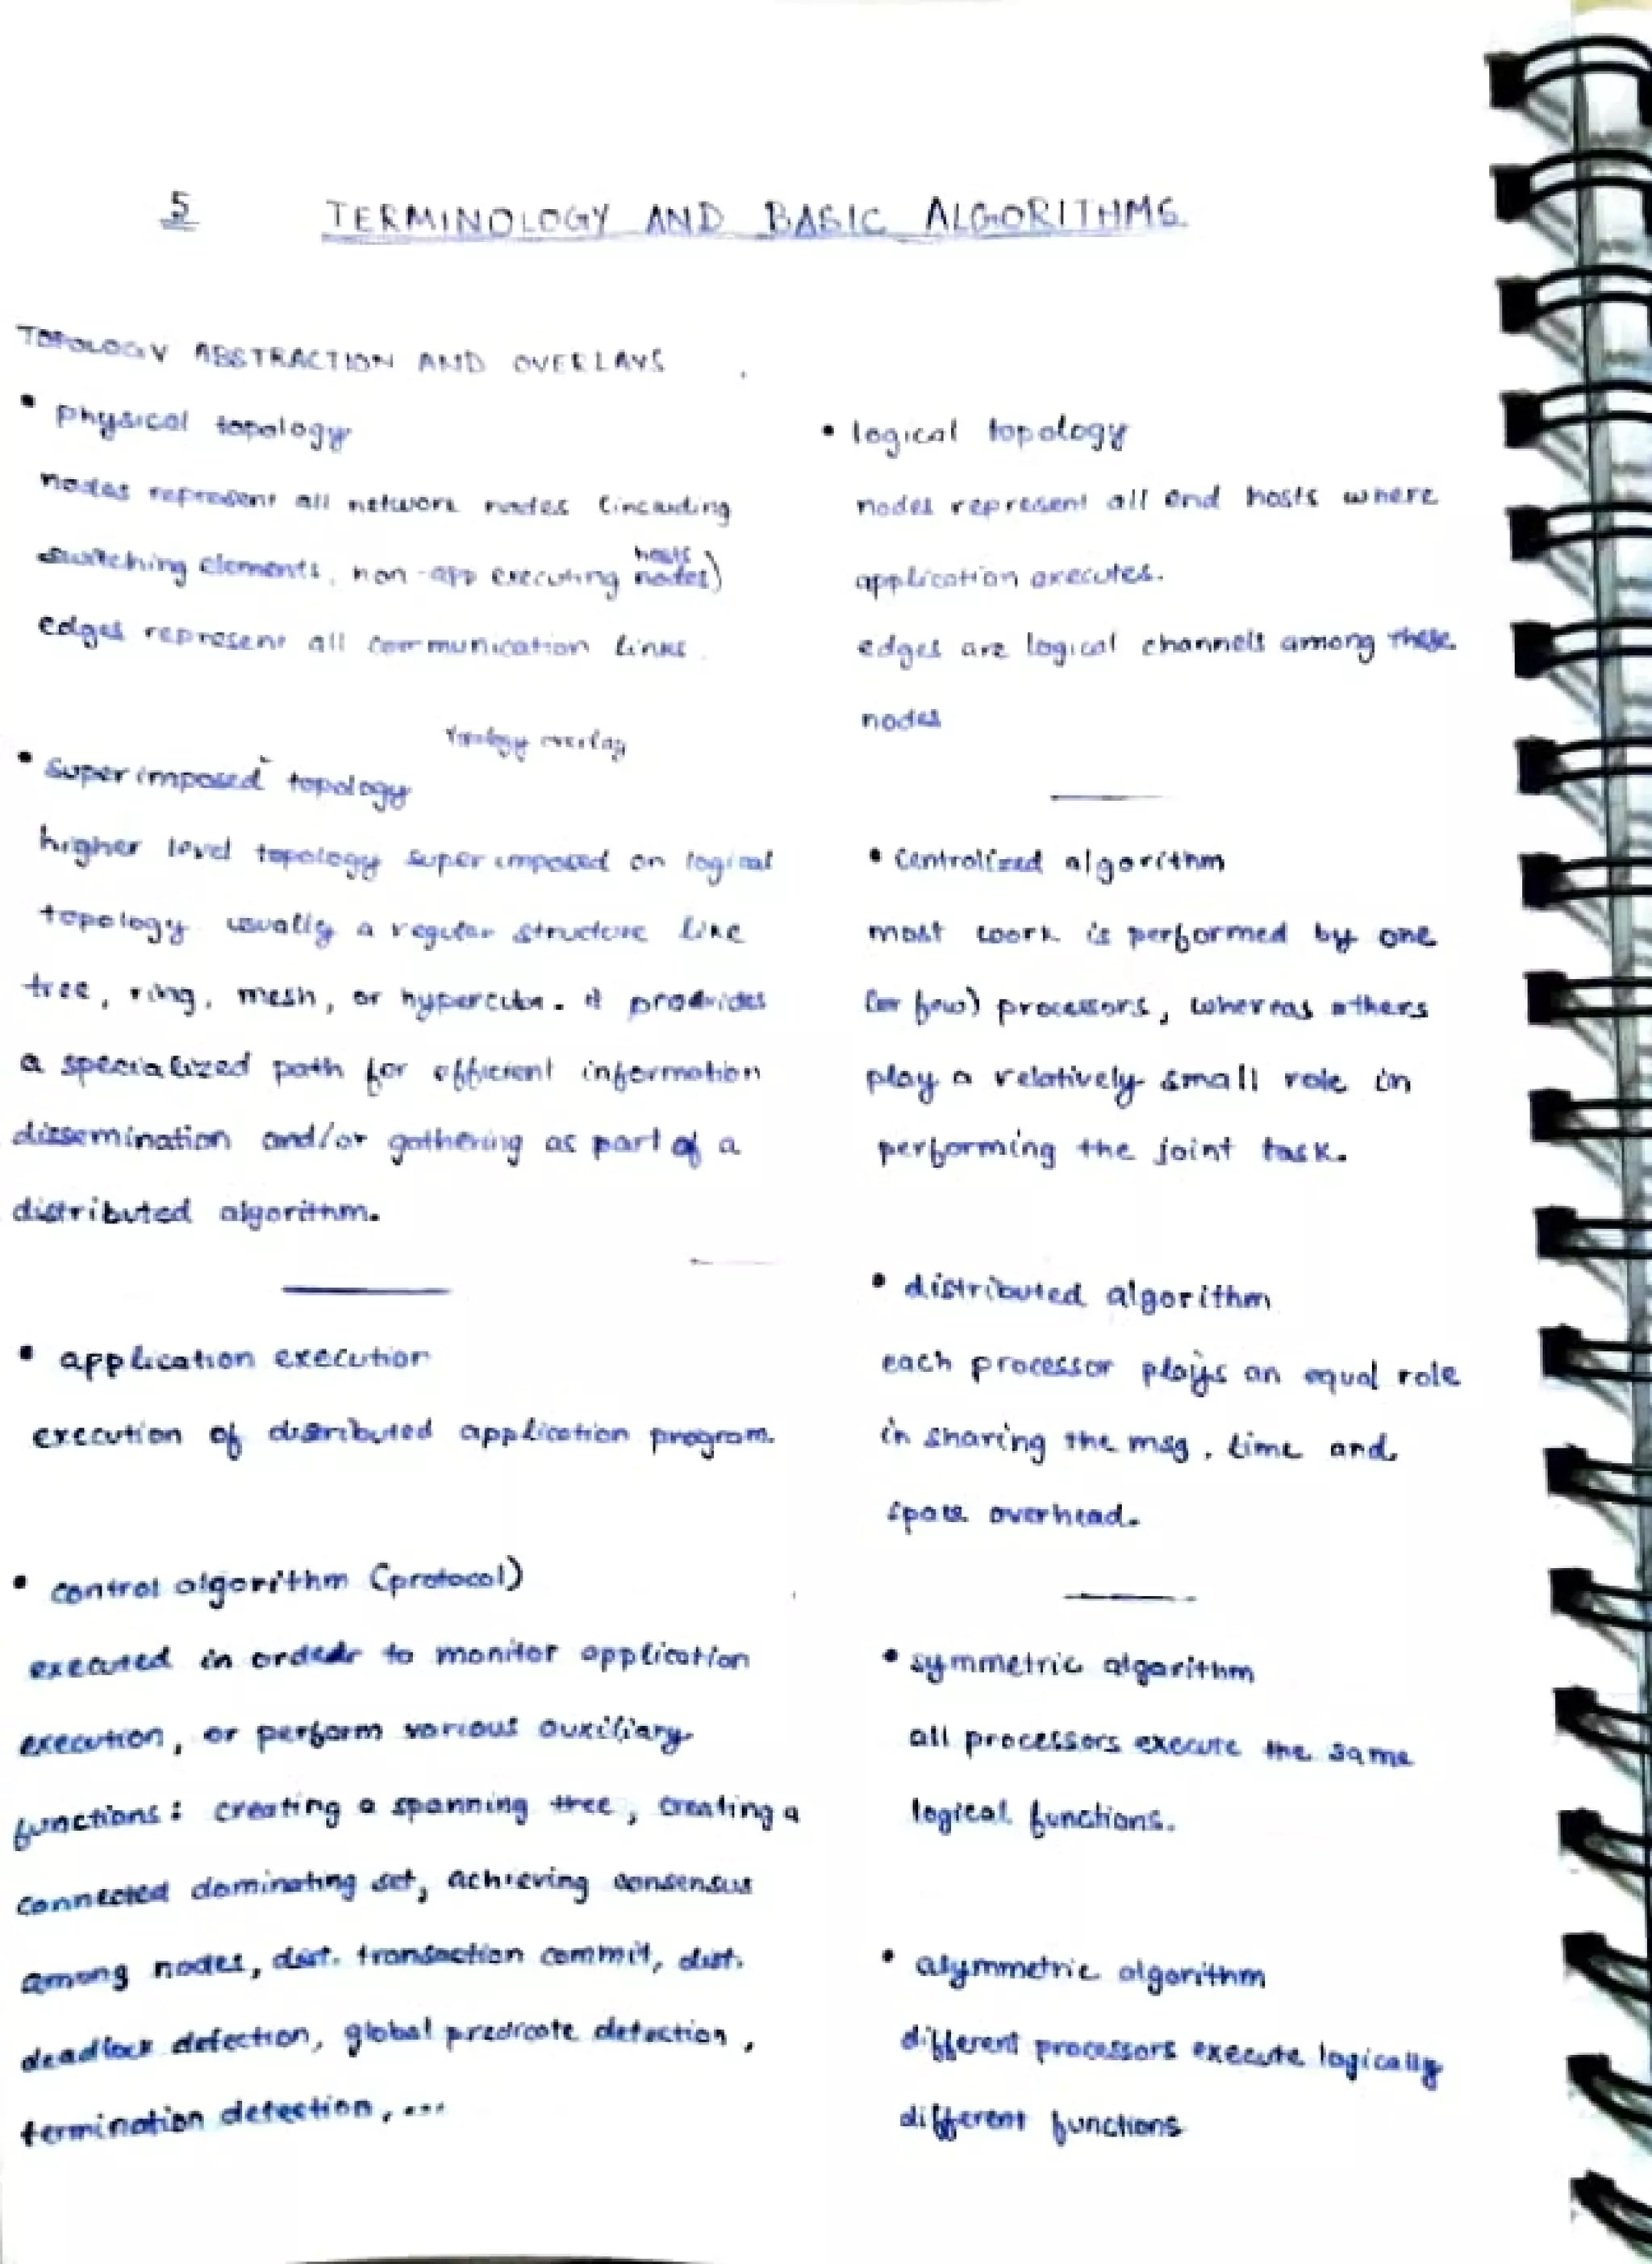 5 TERMINOLOGY AND BASIC ALGORITHMS
TOPOLOGY ABSTRACTION AND OVERLAYS
• physical topology
nodes represent all network nodes (including
switching elements, non-app executing nodes)
hosts
edges represent all communication links.
topology overlay
• superimposed topology
higher level topology superimposed on logical
topology. usually a regular structure like
tree, ring, mesh, or hypercube. it provides
a specialized path for efficient information
dissemination and/or gathering as part of a
distributed algorithm.
• application execution
execution of distributed application program.
• control algorithm (protocol)
executed in order to monitor application
execution, or perform various auxiliary
functions: creating a spanning tree, creating a
connected dominating set, achieving consensus
among nodes, dist. transaction commit, dist.
deadlock detection, global predicate detection,
termination detection, ...
• logical topology
nodes represent all end hosts where
application executes.
edges are logical channels among these
nodes
• centralized algorithm
most work is performed by one
(or few) processors, whereas others
play a relatively small role in
performing the joint task.
• distributed algorithm
each processor plays an equal role
in sharing the msg, time and
space overhead.
• symmetric algorithm
all processors execute the same
logical functions.
• asymmetric algorithm
different processors execute logically
different functions